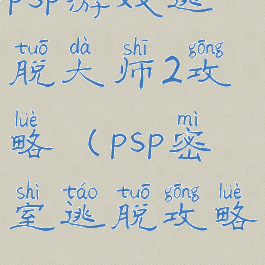 psp游戏逃
tuō dà shī gōng
脱大师2攻
lüè mì
略(psp密
shì táo tuō gōng lüè
室逃脱攻略